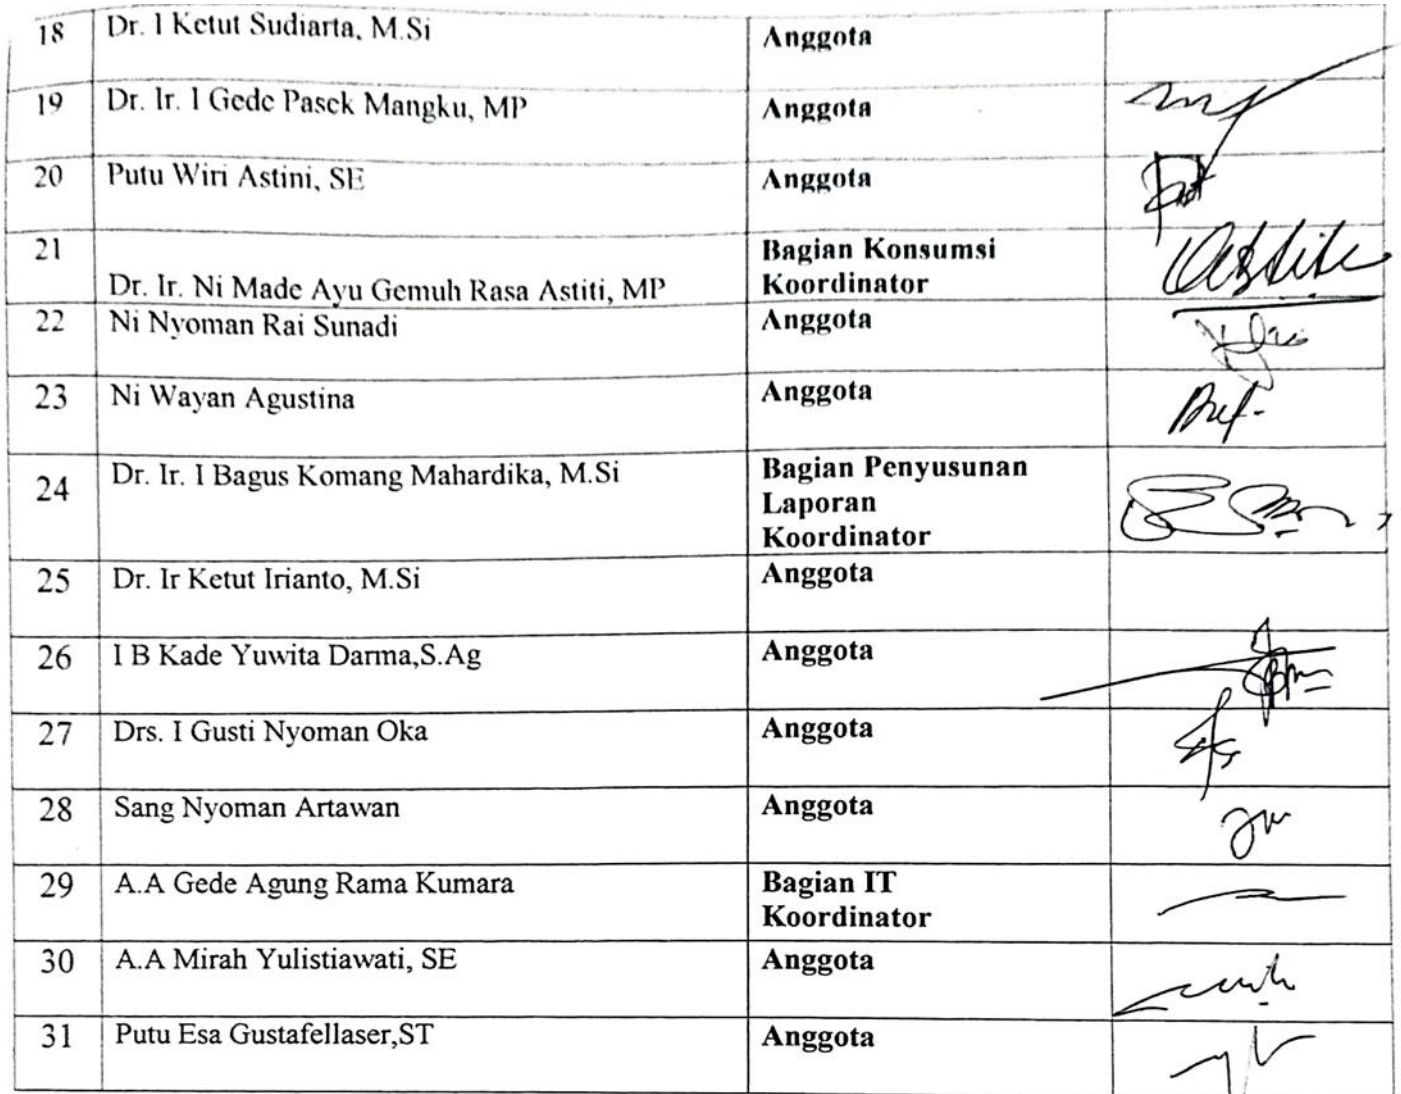 18 Dr. I Ketut Sudiarta, M.Si Anggota
19 Dr. Ir. I Gede Pasek Mangku, MP Anggota
20 Putu Wiri Astini, SE Anggota
21 Bagian Konsumsi
Dr. Ir. Ni Made Ayu Gemuh Rasa Astiti, MP Koordinator
22 Ni Nyoman Rai Sunadi Anggota
23 Ni Wayan Agustina Anggota
24 Dr. Ir. I Bagus Komang Mahardika, M.Si Bagian Penyusunan
Laporan
Koordinator
25 Dr. Ir Ketut Irianto, M.Si Anggota
26 I B Kade Yuwita Darma,S.Ag Anggota
27 Drs. I Gusti Nyoman Oka Anggota
28 Sang Nyoman Artawan Anggota
29 A.A Gede Agung Rama Kumara Bagian IT
Koordinator
30 A.A Mirah Yulistiawati, SE Anggota
31 Putu Esa Gustafellaser,ST Anggota